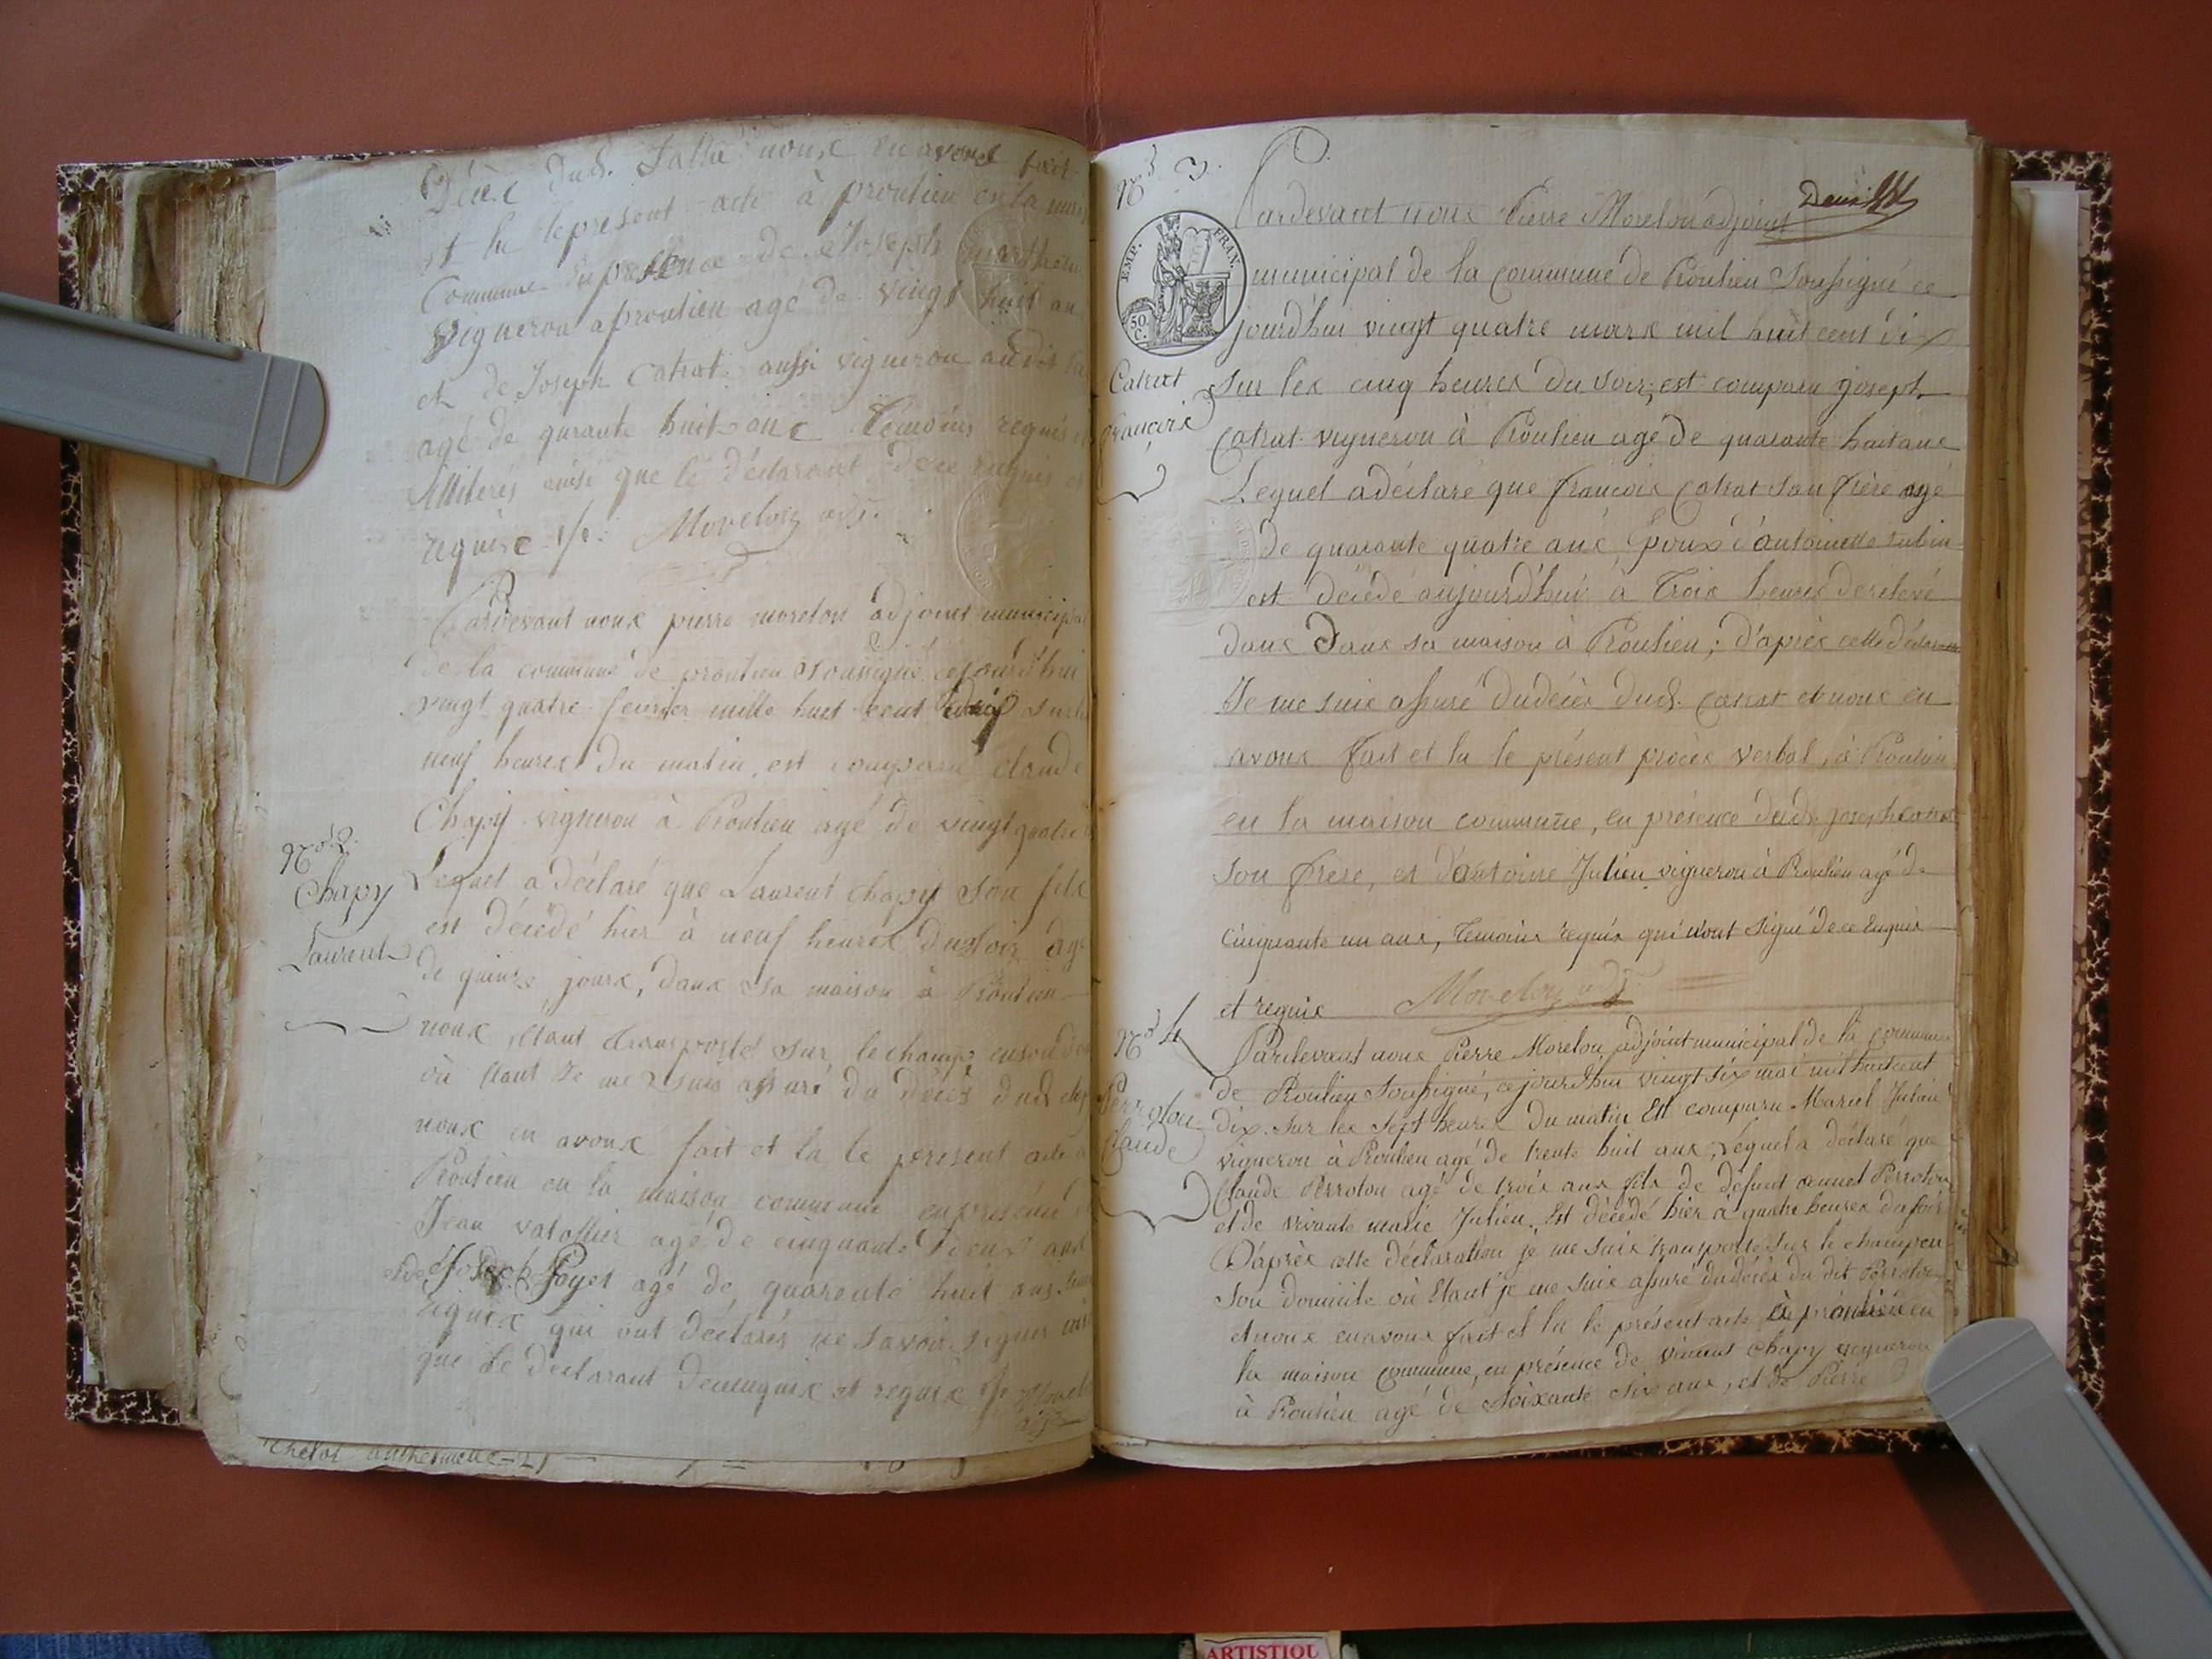 Décès dud. Salla nous en avons fait
et lu le present acte à proulieu en la
Commune En presence de Joseph
Vigneron a proulieu agé de vingt huit an
et de Joseph Catrat aussi vigneron audit
agé de quarante huit ans Témoins requis
Illiterés ainsi que le déclarant de ce enquis
requise ./. Morelon adj.
Pardevant nous pierre morelon adjoint municipal
de la commune de proulieu soussigné cejourd'hui
vingt quatre fevrier mille huit cent dix sur les
neuf heures du matin, est comparu claude
Chapy vigneron à Proulieu agé de vingt quatre
Nº 2.
Chapy
Laurent
Lequel a déclaré que Laurent chapy son fils
est décédé hier à neuf heures du soir agé
de quinze jours, dans sa maison à Proulieu
nous étant transporté sur le champ en son
où étant Je me suis assuré du décès dud
nous en avons fait et lu le present acte à
Proulieu en la maison commune en presence
Jean vatassier agé de cinquante deux ans
et de Joseph Foyet agé de quarante huit ans
requis qui ont déclarés ne savoir signer
que le declarant de ce enquis et requis ./.
adj.
Chelot anthelmene = 21
Nº 3.
EMP. FRAN.
50 C.
Catrat
françois
Pardevant nous Pierre Morelon adjoint
municipal de la Commune de Proulieu Soussigné ce
jourd'hui vingt quatre mars mil huit cent dix
Sur les cinq heures du soir, est comparu joseph
Catrat vigneron à Proulieu agé de quarante huit ans
Lequel a déclaré que françois Catrat son frère agé
de quarante quatre ans Epoux d'antoinette
est décédé aujourd'hui à Trois heures de relevé
dans dans sa maison à Proulieu; d'après cette
Je me suis assuré du décès dud. Catrat et nous en
avons fait et lu le présent procès verbal, à Proulieu
en la maison commune, en présence dud. joseph catrat
son frère, et d'antoine Julien vigneron à Proulieu agé de
Cinquante un ans, Temoins requis qui n'ont signé de ce Enquis
et requis Morelon adj.
Nº 4
Perroton
Claude
Pardevant nous Pierre Morelon adjoint municipal de la commune
de Proulieu Soussigné, ce jourd'hui vingt six mai mil huit cent
dix. Sur les Sept heures du matin Est comparu Marcel Julien
vigneron à Proulieu agé de trente huit ans, Lequel a déclaré que
Claude Perroton agé de trois ans fils de défunt annet Perroton
et de vivante marie Julien, Est décédé hier à quatre heures du soir
D'après cette déclaration je me suis transporté sur le champ en
Son domicile où Etant je me suis assuré du décès du dit Perroton
et nous en avons fait et lu le présent acte à proulieu en
la maison commune, en présence de vincent Chapy vigneron
à Proulieu agé de Soixante six ans, et de Pierre
ARTISTIQU